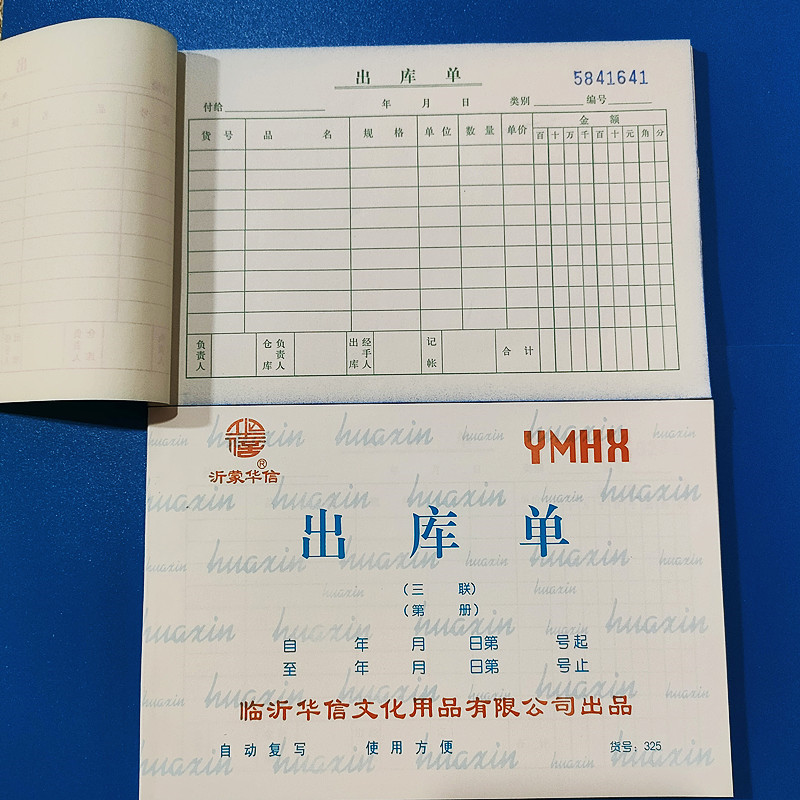 出 库 单
5841641
付给 年 月 日 类别 编号
货 号 品 名 规 格 单 位 数 量 单价 金 额
百 十 万 千 百 十 元 角 分
负责人 仓库负责人 出库经手人 记帐 合 计
huaxin huaxin huaxin huaxin huaxin
YMHX
沂蒙华信®
huaxin huaxin huaxin huaxin
出 库 单
huaxin huaxin huaxin huaxin
(三 联)
(第 册)
huaxin huaxin huaxin huaxin
自 年 月 日第 号起
至 年 月 日第 号止
huaxin huaxin huaxin huaxin
临沂华信文化用品有限公司出品
自动复写 使用方便 货号:325
huaxin huaxin huaxin huaxin